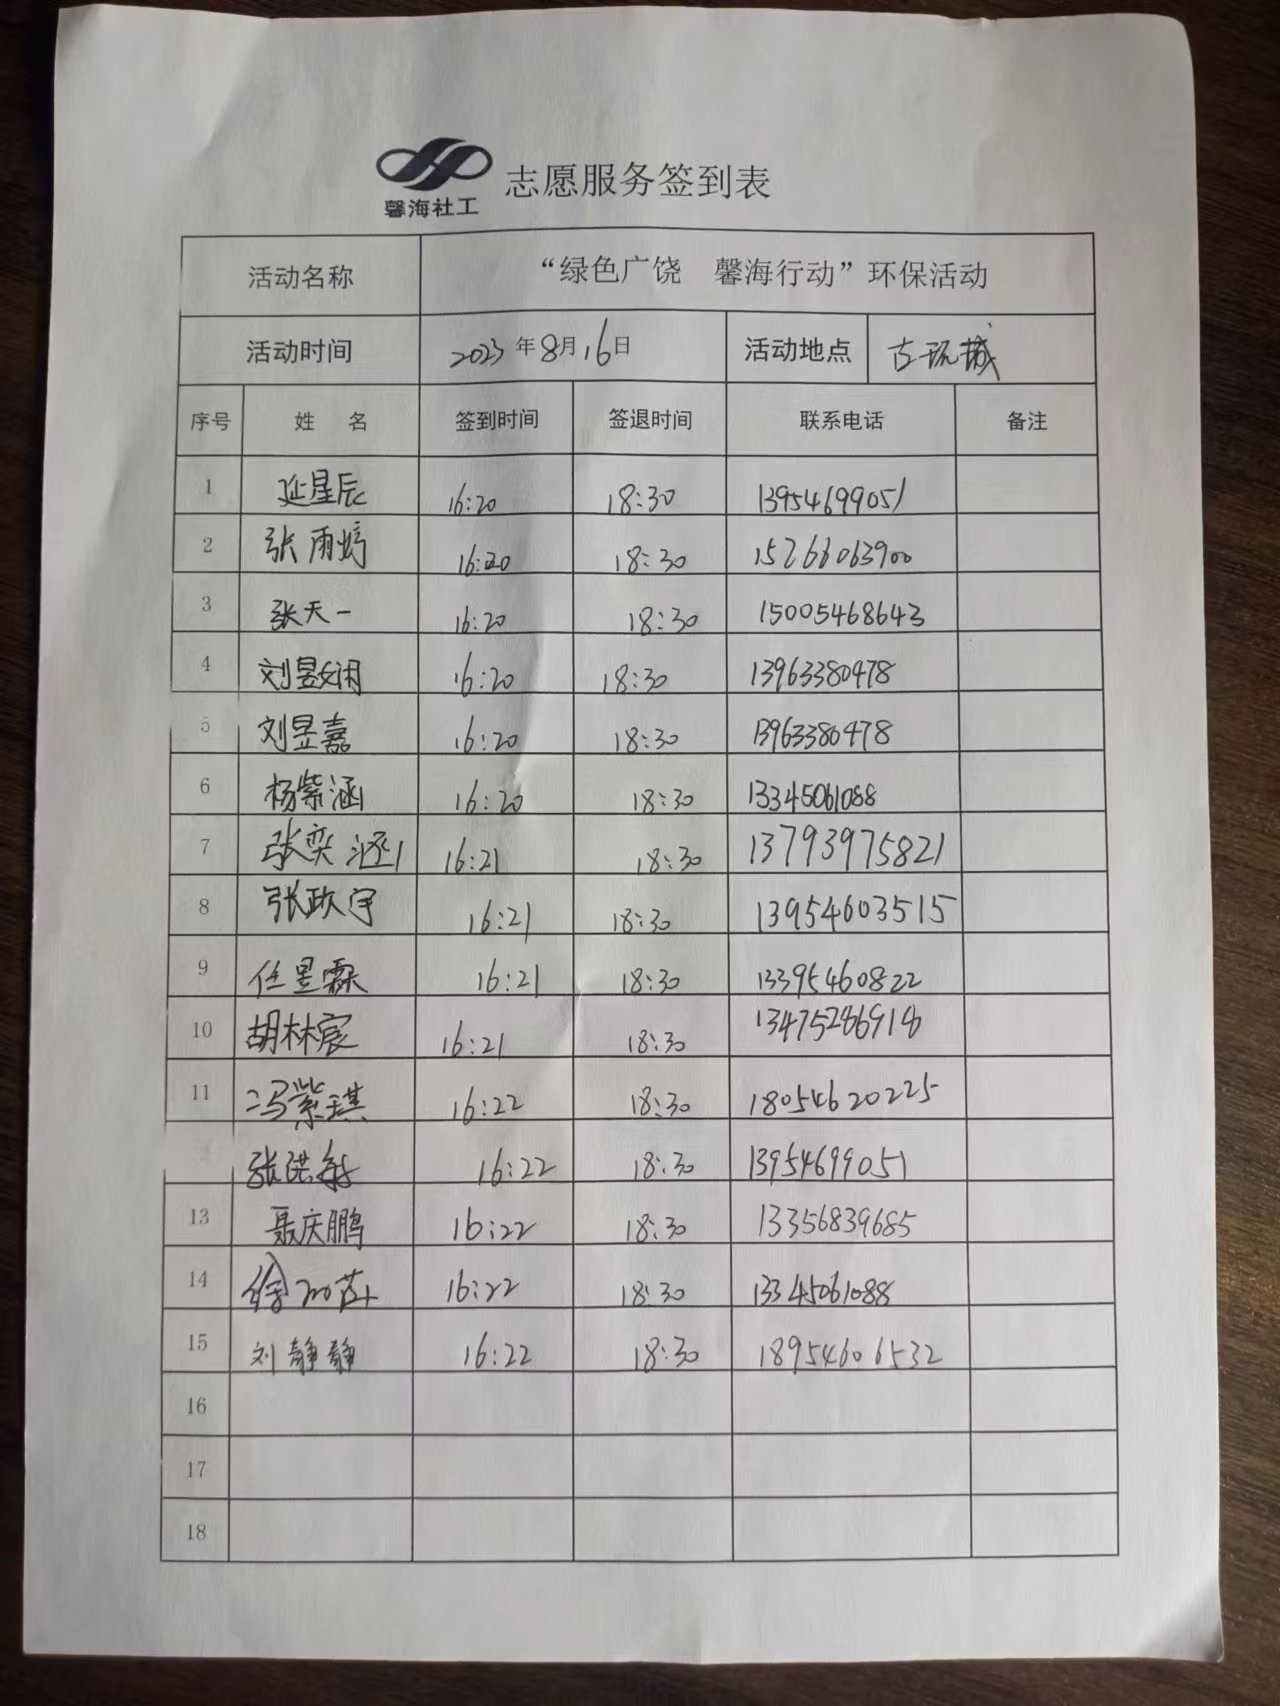 馨海社工
志愿服务签到表
活动名称 “绿色广饶 馨海行动”环保活动
活动时间 2023年8月16日 活动地点 古玩城
序号 姓 名 签到时间 签退时间 联系电话 备注
1 延星辰 16:20 18:30 13954699051
2 张雨婷 16:20 18:30 15266063900
3 张天一 16:20 18:30 15005468643
4 刘昱娴 16:20 18:30 13963380478
5 刘昱嘉 16:20 18:30 13963380478
6 杨紫涵 16:20 18:30 13345061088
7 张奕涵 16:21 18:30 13793975821
8 张政宇 16:21 18:30 13954603515
9 任昱霖 16:21 18:30 13395460822
10 胡林宸 16:21 18:30 13475286918
11 冯紫琪 16:22 18:30 18054620225
张洪敏 16:22 18:30 13954699051
13 聂庆鹏 16:22 18:30 13356839685
14 徐 16:22 18:30 13345061088
15 刘静静 16:22 18:30 18954606532
16
17
18